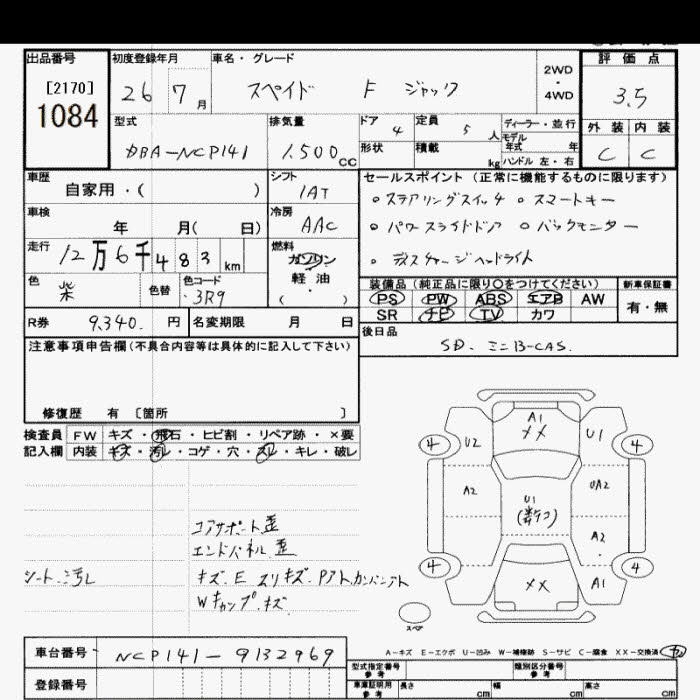 出品番号 初度登録年月 車名・グレード 評価点
[2170] 26 7月 スペイド F ジャック 2WD・4WD 3.5
1084
型式 排気量 ドア 4 定員 5人 ディーラー・並行 外装 内装
DBA-NCP141 1,500cc 形状 積載 kg モデル年式 年 ハンドル 左・右 C C
車歴 自家用・( ) シフト 1AT セールスポイント(正常に機能するものに限ります)
車検 年 月( 日) 冷房 AAC
○ステアリングスイッチ ○スマートキー
○パワースライドドア ○バックモニター
○ディスチャージヘッドライト
走行 12万6千483km 燃料 ガソリン 軽油・( )
色 柴 色替 色コード 3R9
装備品(純正品に限り○をつけてください) 新車保証書
PS PW ABS エアB AW 有・無
SR ナビ TV カワ
R券 9,340.円 名変期限 月 日 後日品
SD. ミニB-CAS.
注意事項申告欄(不具合内容等は具体的に記入して下さい)
修復歴 有 [箇所 ]
検査員記入欄 FW キズ・飛石・ヒビ割・リペア跡・×要
内装 キズ・汚レ・コゲ・穴・スレ・キレ・破レ
コアサポート歪
エンドパネル歪
シート汚レ キズ.E スリキズ.Pアト
Wキャップ.キズ
A1
××
4 U2 U1 4
A2 U1 UA2
A2
4 ×× A1 4
スペア
A-キズ E-エクボ U-凹み W-補修跡 S-サビ C-腐食 XX-交換済
車台番号 NCP141-9132969
登録番号
型式指定番号 参考 類別区分番号 参考
車庫証明用 参考 長さ cm 幅 cm 高さ cm